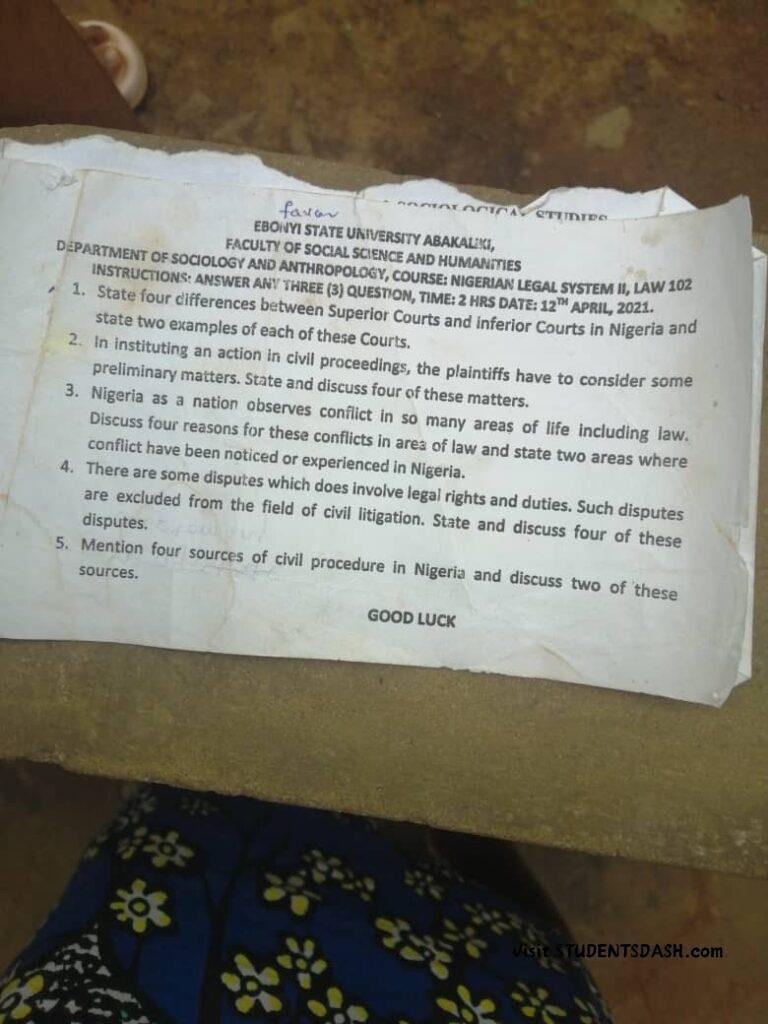 SOCIOLOGICAL STUDIES
favour
EBONYI STATE UNIVERSITY ABAKALIKI,
FACULTY OF SOCIAL SCIENCE AND HUMANITIES
DEPARTMENT OF SOCIOLOGY AND ANTHROPOLOGY, COURSE: NIGERIAN LEGAL SYSTEM II, LAW 102
INSTRUCTIONS: ANSWER ANY THREE (3) QUESTION, TIME: 2 HRS DATE: 12TH APRIL, 2021.
1. State four differences between Superior Courts and inferior Courts in Nigeria and
state two examples of each of these Courts.
2. In instituting an action in civil proceedings, the plaintiffs have to consider some
preliminary matters. State and discuss four of these matters.
3. Nigeria as a nation observes conflict in so many areas of life including law.
Discuss four reasons for these conflicts in area of law and state two areas where
conflict have been noticed or experienced in Nigeria.
4. There are some disputes which does involve legal rights and duties. Such disputes
are excluded from the field of civil litigation. State and discuss four of these
disputes.
5. Mention four sources of civil procedure in Nigeria and discuss two of these
sources.
GOOD LUCK
Visit STUDENTSDASH.com